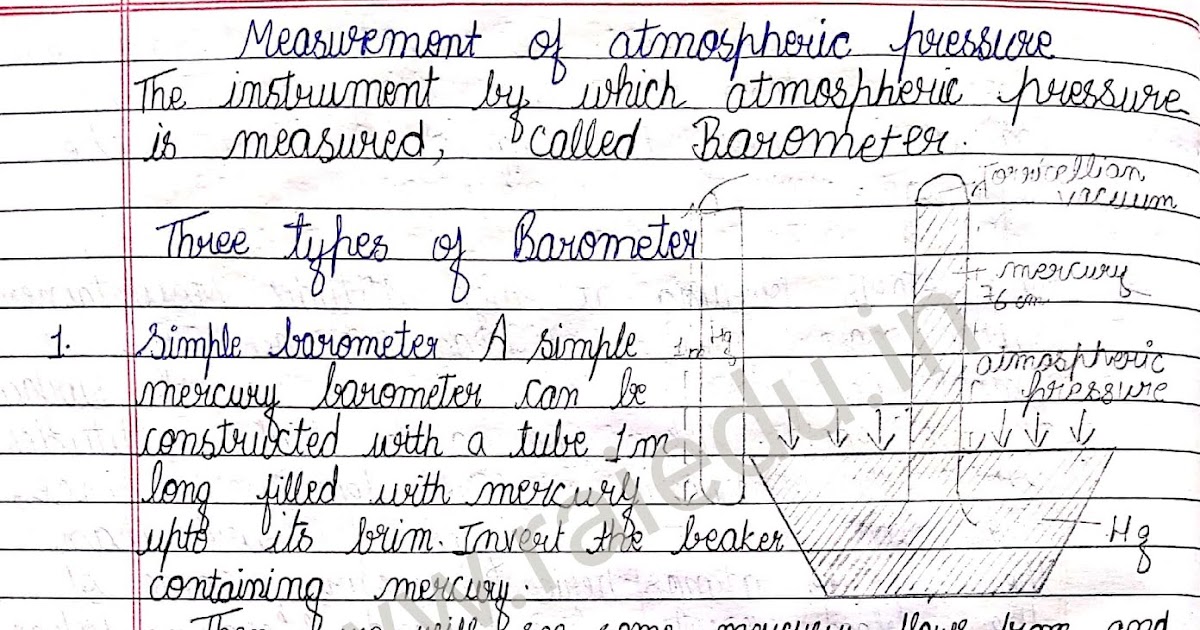 Measurement of atmospheric pressure
The instrument by which atmospheric pressure
is measured, called Barometer.
Torricellian
vacuum
Three types of Barometer
mercury
76 cm
1. Simple barometer A simple
1m Hg
mercury barometer can be
atmospheric
pressure
constructed with a tube 1m
long filled with mercury
upto its brim. Invert the beaker
Hg
containing mercury.
Then will see some mercury flows from and
www.raiedu.in